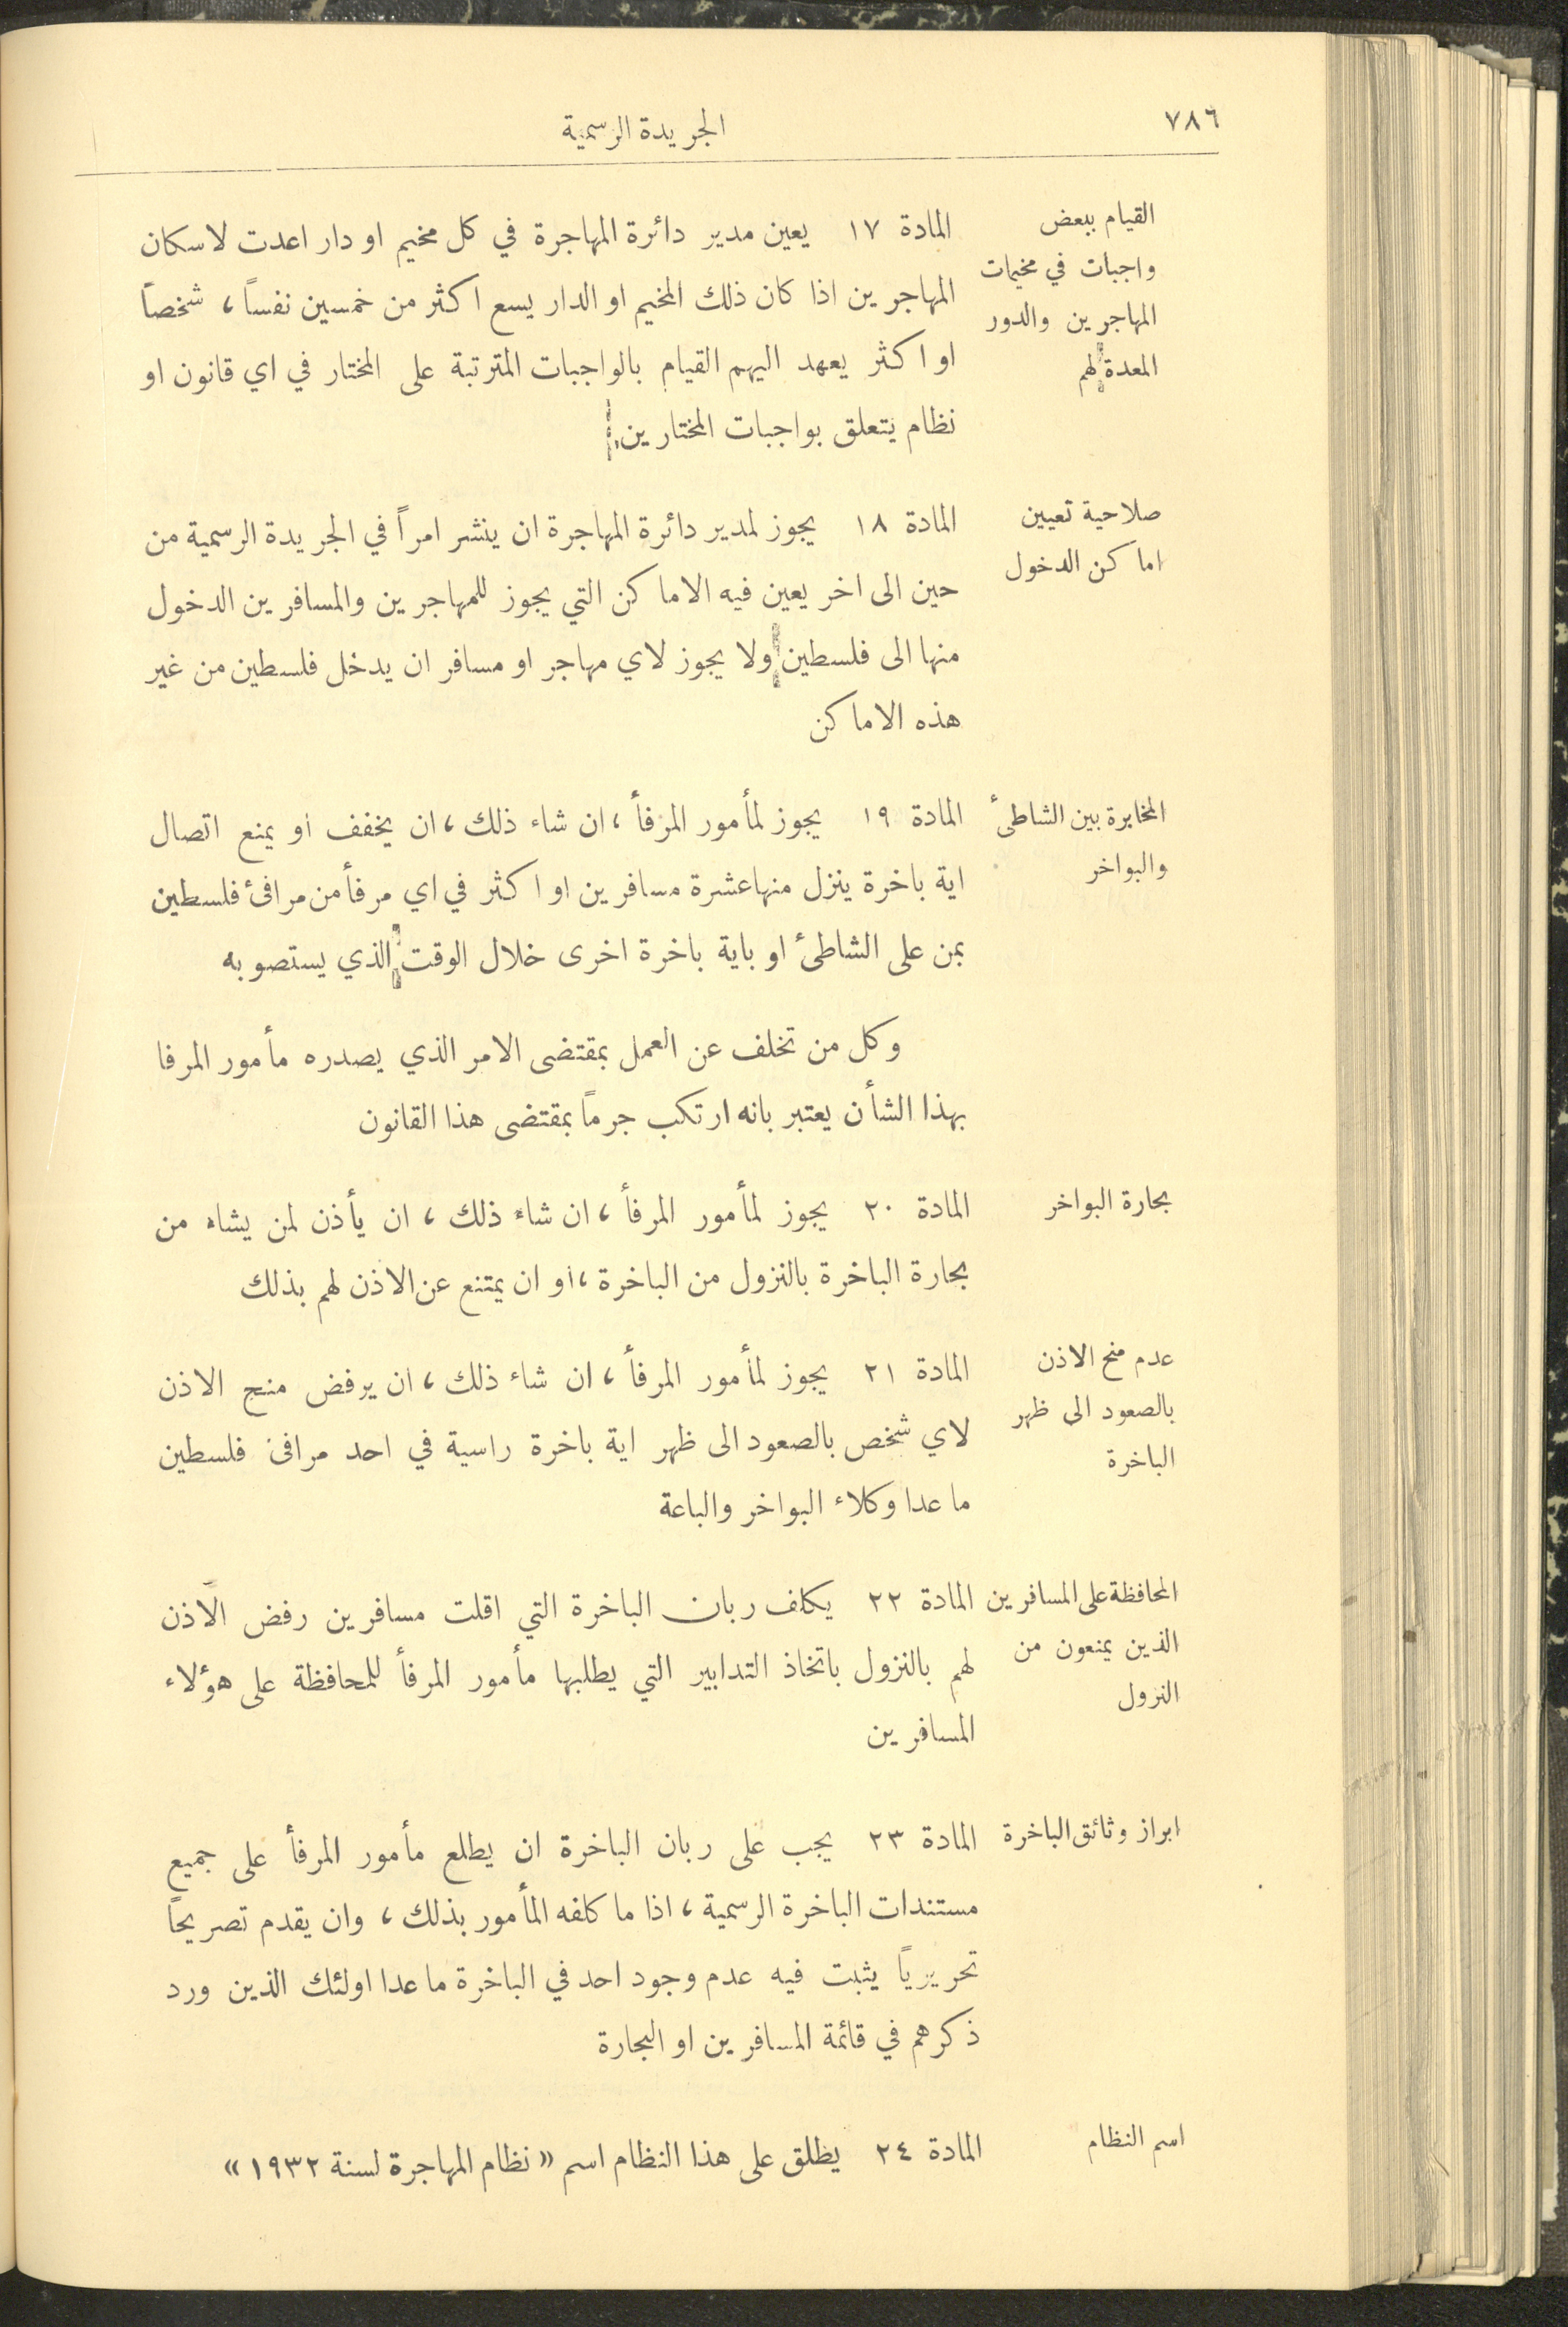 ٧٨٦
الجريدة الرسمية
القيام ببعض
واجبات في مخيمات
المهاجرين والدور
المعدة لهم
المادة ١٧ يعين مدير دائرة المهاجرة في كل مخيم او دار اعدت لاسكان
المهاجرين اذا كان ذلك المخيم او الدار يسع اكثر من خمسين نفساً، شخصاً
او اكثر يعهد اليهم القيام بالواجبات المترتبة على المختار في اي قانون او
نظام يتعلق بواجبات المختارين.
صلاحية تعيين
اماكن الدخول
المادة ١٨ يجوز لمدير دائرة المهاجرة ان ينشر امراً في الجريدة الرسمية من
حين الى اخر يعين فيه الاماكن التي يجوز للمهاجرين والمسافرين الدخول
منها الى فلسطين ولا يجوز لاي مهاجر او مسافر ان يدخل فلسطين من غير
هذه الاماكن
المخابرة بين الشاطئ
والبواخر
المادة ١٩ يجوز لمأمور المرفأ، ان شاء ذلك، ان يخفف او يمنع اتصال
اية باخرة ينزل منها عشرة مسافرين او اكثر في اي مرفأ من مرافئ فلسطين
بمن على الشاطئ او باية باخرة اخرى خلال الوقت الذي يستصوبه
وكل من تخلف عن العمل بمقتضى الامر الذي يصدره مأمور المرفا
بهذا الشأن يعتبر بانه ارتكب جرماً بمقتضى هذا القانون
بحارة البواخر
المادة ٢٠ يجوز لمأمور المرفأ، ان شاء ذلك، ان يأذن لمن يشاء من
بحارة الباخرة بالنزول من الباخرة، او ان يمتنع عن الاذن لهم بذلك
عدم منح الاذن
بالصعود الى ظهر
الباخرة
المادة ٢١ يجوز لمأمور المرفأ، ان شاء ذلك، ان يرفض منح الاذن
لاي شخص بالصعود الى ظهر اية باخرة راسية في احد مرافئ فلسطين
ما عدا وكلاء البواخر والباعة
المحافظة على المسافرين
الذين يمنعون من
النزول
المادة ٢٢ يكلف ربان الباخرة التي اقلت مسافرين رفض الاذن
لهم بالنزول باتخاذ التدابير التي يطلبها مأمور المرفأ للمحافظة على هؤلاء
المسافرين
ابراز وثائق الباخرة
المادة ٢٣ يجب على ربان الباخرة ان يطلع مأمور المرفأ على جميع
مستندات الباخرة الرسمية، اذا ما كلفه المأمور بذلك، وان يقدم تصريحاً
تحريرياً يثبت فيه عدم وجود احد في الباخرة ما عدا اولئك الذين ورد
ذكرهم في قائمة المسافرين او البحارة
اسم النظام
المادة ٢٤ يطلق على هذا النظام اسم «نظام المهاجرة لسنة ١٩٣٢»